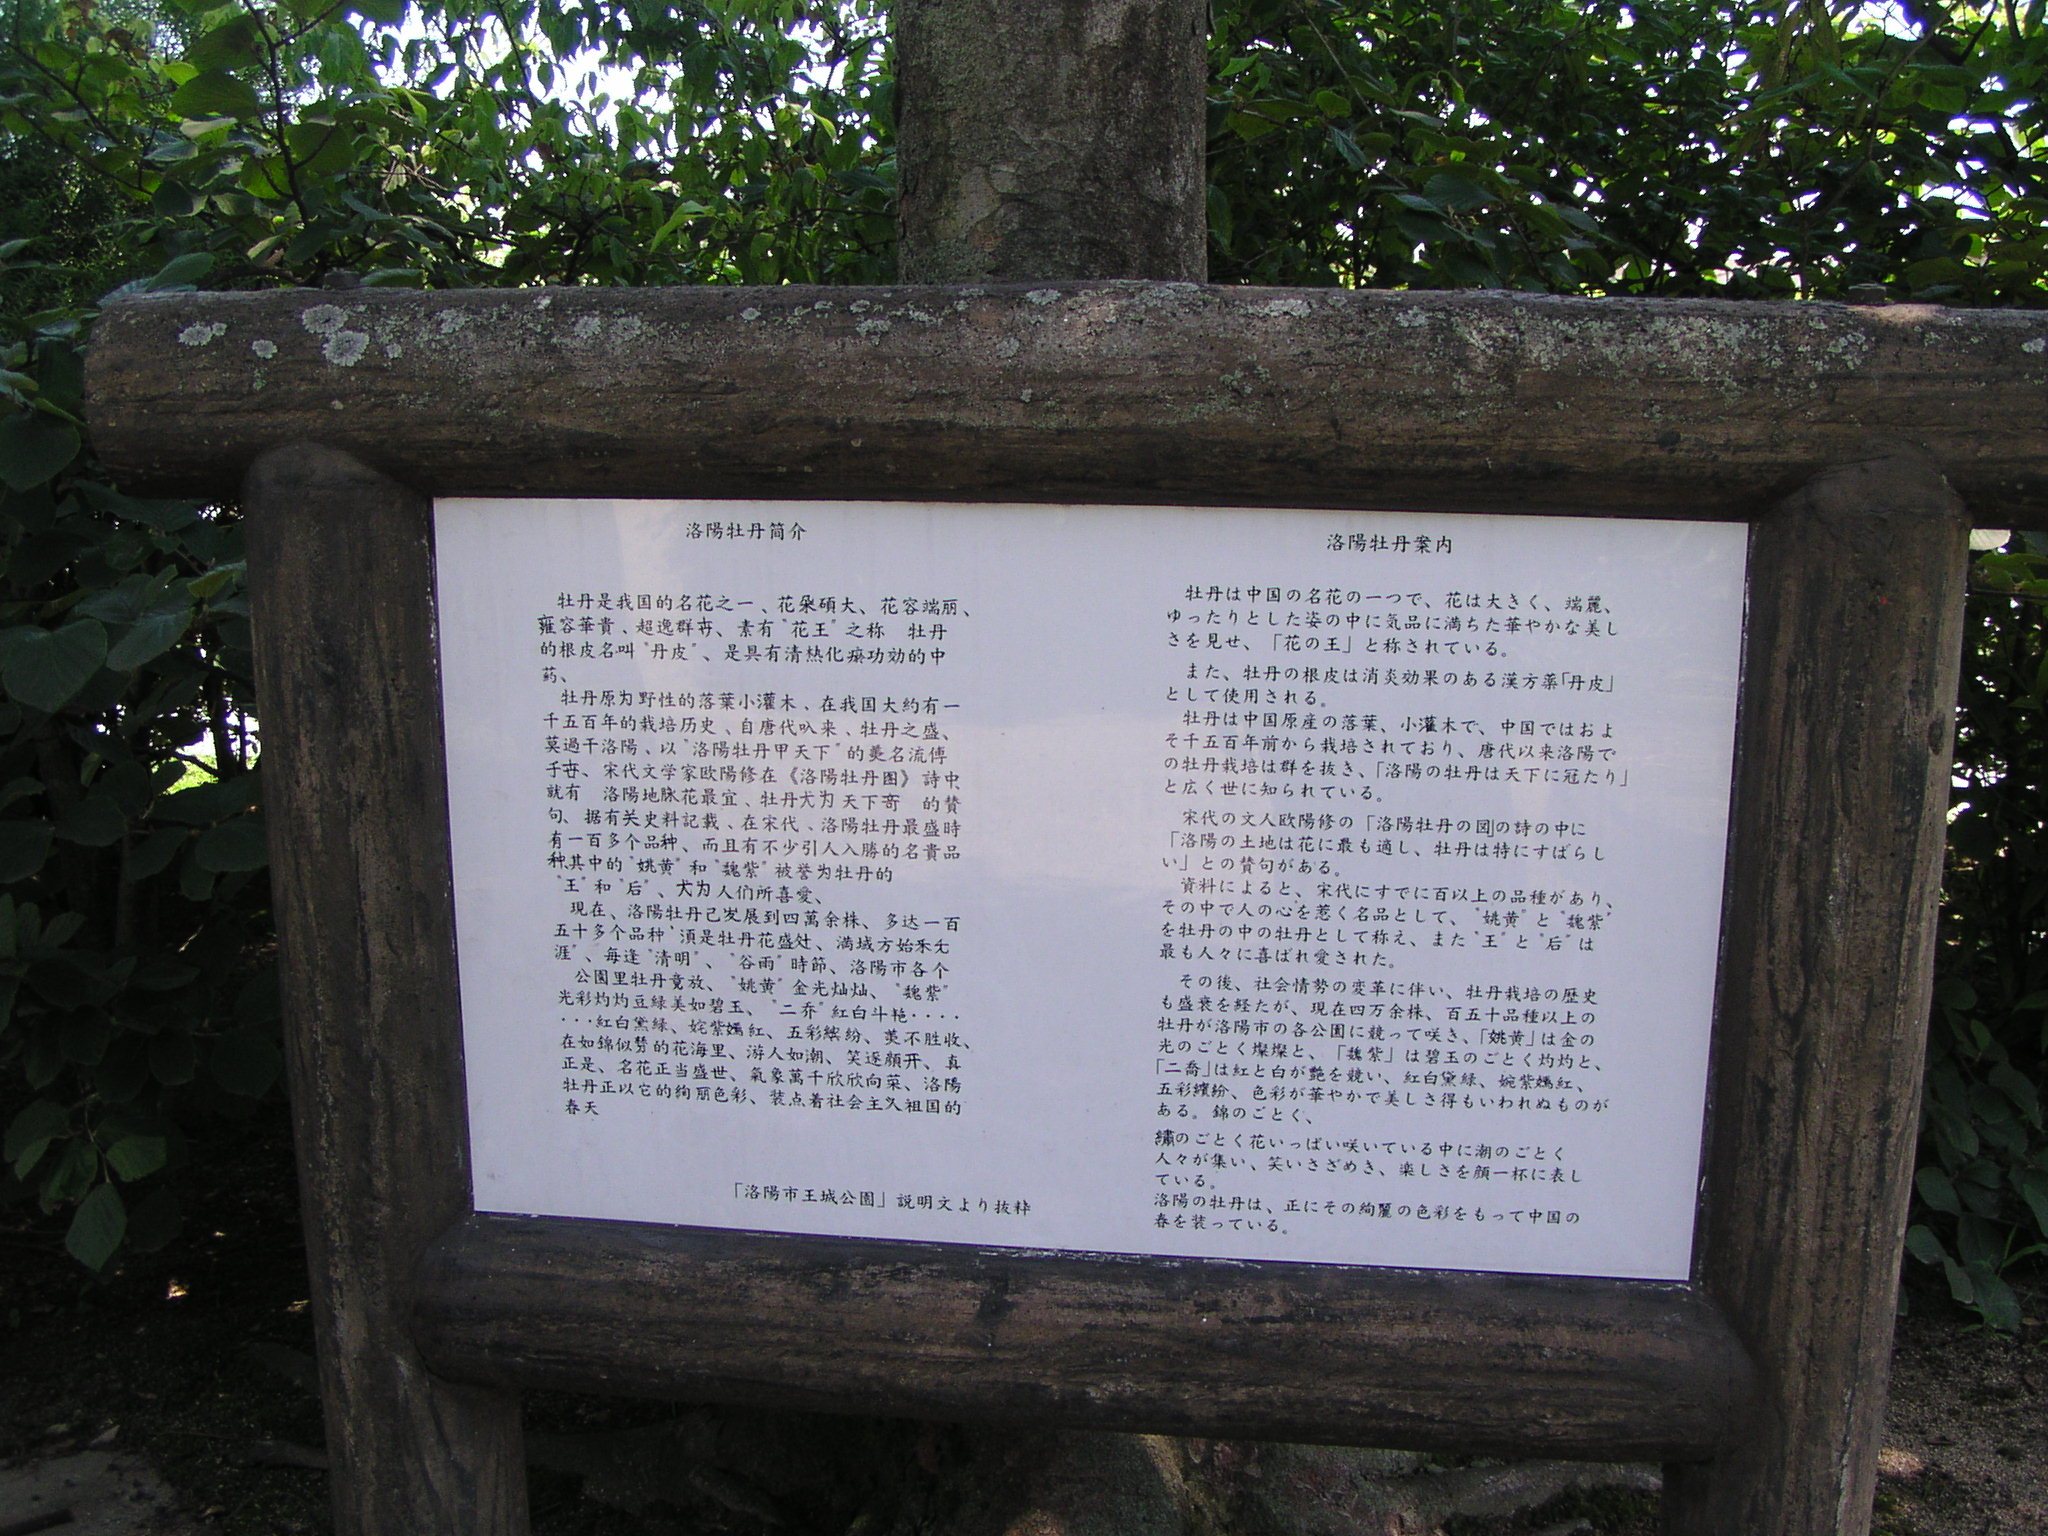 洛陽牡丹简介
牡丹是我国的名花之一、花朶碩大、花容端丽、
雍容華貴、超逸群卉、素有"花王"之称 牡丹
的根皮名叫"丹皮"、是具有清热化瘀功効的中
药、
牡丹原为野性的落葉小灌木、在我国大約有一
千五百年的栽培历史、自唐代以来、牡丹之盛、
莫過于洛陽、以"洛陽牡丹甲天下"的美名流傳
于世、宋代文学家欧陽修在《洛陽牡丹图》詩中
就有 洛陽地脉花最宜、牡丹尤为天下奇 的賛
句、据有关史料記載、在宋代、洛陽牡丹最盛時
有一百多个品种、而且有不少引人入勝的名貴品
种其中的"姚黄"和"魏紫"被誉为牡丹的
"王"和"后"、尤为人们所喜愛、
現在、洛陽牡丹己发展到四萬余株、多达一百
五十多个品种 湏是牡丹花盛处、満城方始乐无
涯"、毎逢"清明"、"谷雨"時節、洛陽市各个
公園里牡丹竟放、"姚黄"金光灿灿、"魏紫"
光彩灼灼豆緑美如碧玉、"二乔"紅白斗艳・・・・
・・・紅白黛緑、姹紫嫣紅、五彩繽紛、美不胜收、
在如錦似的花海里、游人如潮、笑逐顔开、真
正是、名花正当盛世、氣象萬千欣欣向荣、洛陽
牡丹正以它的絢丽色彩、装点着社会主义祖国的
春天
「洛陽市王城公園」説明文より抜粋
洛陽牡丹案内
牡丹は中国の名花の一つで、花は大きく、端麗、
ゆったりとした姿の中に気品に満ちた華やかな美し
さを見せ、「花の王」と称されている。
また、牡丹の根皮は消炎効果のある漢方薬「丹皮」
として使用される。
牡丹は中国原産の落葉、小灌木で、中国ではおよ
そ千五百年前から栽培されており、唐代以来洛陽で
の牡丹栽培は群を抜き、「洛陽の牡丹は天下に冠たり」
と広く世に知られている。
宋代の文人欧陽修の「洛陽牡丹の図」の詩の中に
「洛陽の土地は花に最も適し、牡丹は特にすばらし
い」との賛句がある。
資料によると、宋代にすでに百以上の品種があり、
その中で人の心を惹く名品として、"姚黄"と"魏紫"
を牡丹の中の牡丹として称え、また"王"と"后"は
最も人々に喜ばれ愛された。
その後、社会情勢の変革に伴い、牡丹栽培の歴史
も盛衰を経たが、現在四万余株、百五十品種以上の
牡丹が洛陽市の各公園に競って咲き、「姚黄」は金の
光のごとく燦燦と、「魏紫」は碧玉のごとく灼灼と、
「二喬」は紅と白が艶を競い、紅白黛緑、婉紫嫣紅、
五彩繽紛、色彩が華やかで美しさ得もいわれぬものが
ある。錦のごとく、
繡のごとく花いっぱい咲いている中に潮のごとく
人々が集い、笑いさざめき、楽しさを顔一杯に表し
ている。
洛陽の牡丹は、正にその絢麗の色彩をもって中国の
春を装っている。